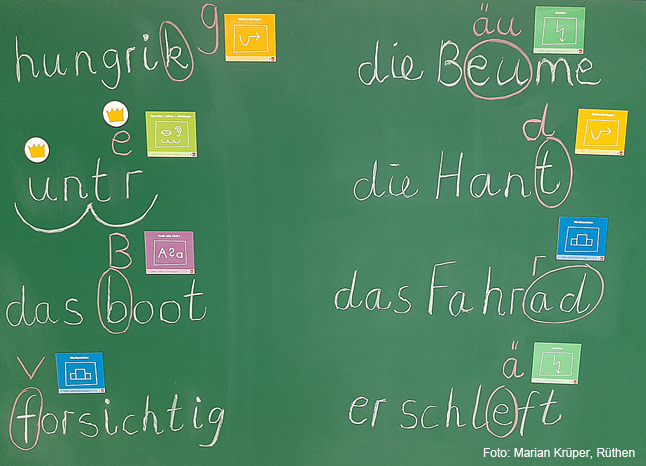 g
hungrik
e
untr
B
A?a
das boot
v
forsichtig
äu
die Beume
d
die Hant
r
das Fahrad
ä
er schleft
Foto: Marian Krüper, Rüthen